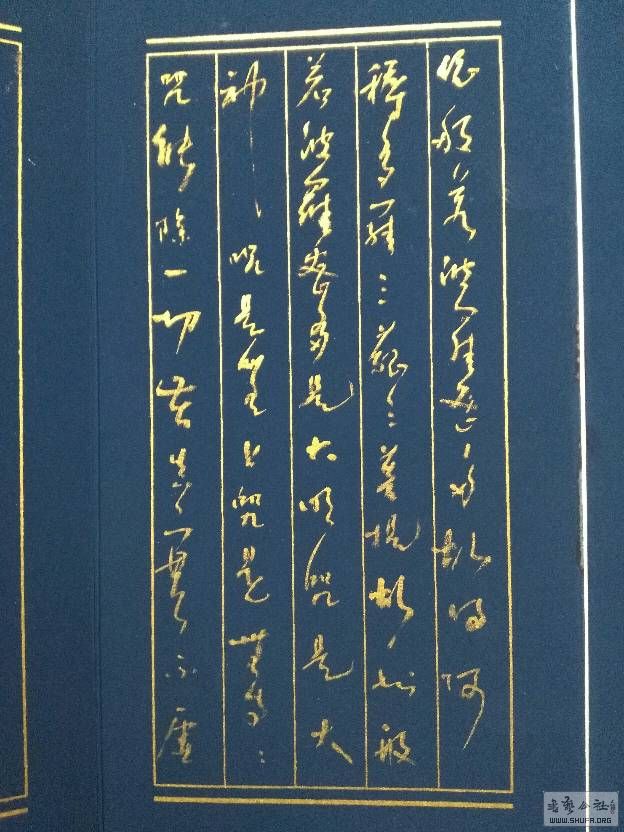 依般若波羅蜜多故得阿
耨多羅三藐三菩提故知般
若波羅蜜多是大明咒是大
神呪是無上咒是無等〻
咒能除一切苦真實不虛
書藝公社
WWW.SHUFA.ORG